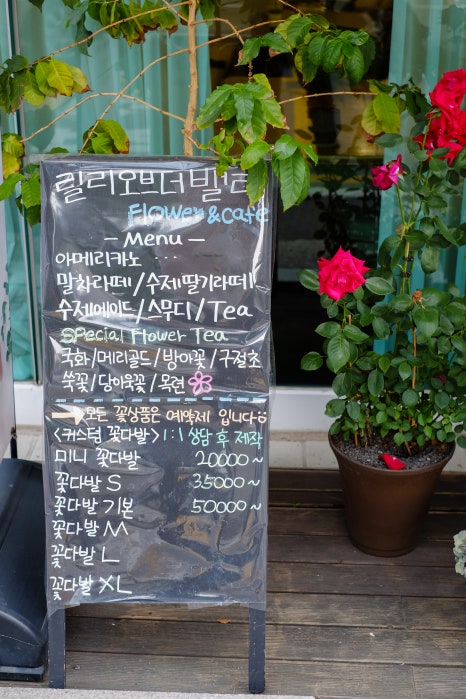 릴리오브더밸리
Flower & cafe
- Menu -
아메리카노 ...
말차라떼/수제딸기라떼
수제에이드/스무디/Tea
special Flower Tea
국화/메리골드/방아꽃/구절초
쑥꽃/당아욱꽃/목련
모든 꽃상품은 예약제 입니다
<커스텀 꽃다발> 1:1 상담 후 제작
미니 꽃다발 20000~
꽃다발 S 35000~
꽃다발 기본 50000~
꽃다발 M
꽃다발 L
꽃다발 XL